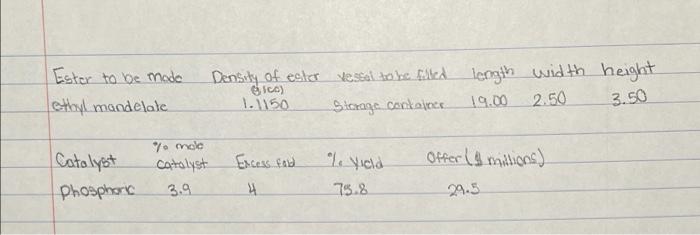 Ester to be made Density of ester vessel to be filled length width height
(g/cc)
ethyl mandelate 1.1150 Storage container 19.00 2.50 3.50
% mole
Catalyst catalyst Excess fold % Yield Offer ($ millions)
Phosphoric 3.9 4 75.8 29.5